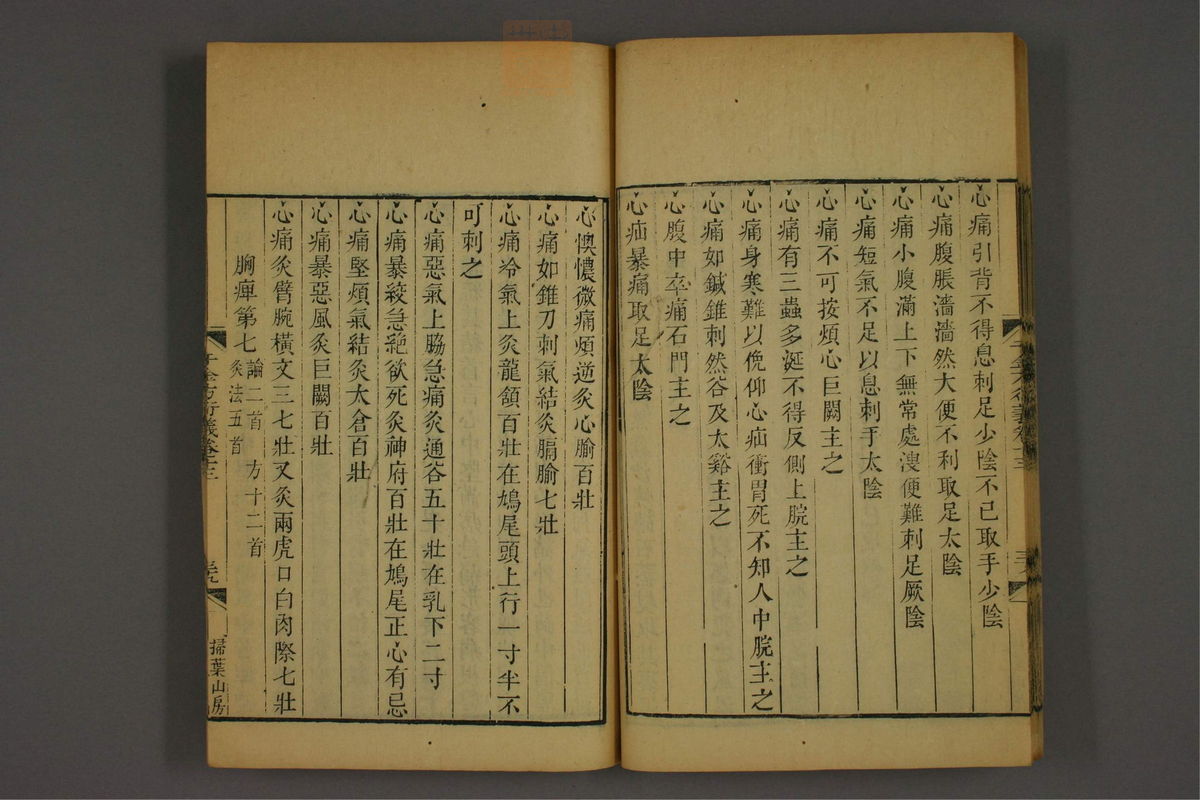 心痛引背不得息刺足少陰不已取手少陰
心痛腹脹濇濇然大便不利取足太陰
心痛小腹滿上下無常處溲便難刺足厥陰
心痛短氣不足以息刺手太陰
心痛不可按煩心巨闕主之
心痛有三蟲多涎不得反側上脘主之
心痛身寒難以俛仰心疝衝胃死不知人中脘主之
心痛如鍼錐刺然谷及太谿主之
心腹中卒痛石門主之
心疝暴痛取足太陰
心懊憹微痛煩逆灸心腧百壯
心痛如錐刀刺氣結灸膈腧七壯
心痛冷氣上灸龍頷百壯在鳩尾頭上行一寸半不
可刺之
心痛惡氣上脇急痛灸通谷五十壯在乳下二寸
心痛暴絞急絕欲死灸神府百壯在鳩尾正心有忌
心痛堅煩氣結灸太倉百壯
心痛暴惡風灸巨闕百壯
心痛灸臂腕橫文三七壯又灸兩虎口白肉際七壯
胸痺第七 論二首 方十二首
灸法五首
千金方衍義卷十三
三九
掃葉山房